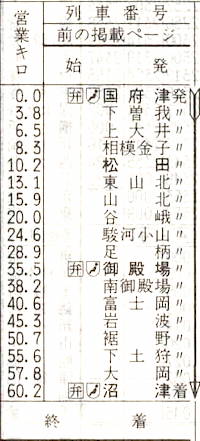 営業キロ
列車番号
前の掲載ページ
始 発
0.0 弁 国府津発
3.8 下曽我〃
6.5 上大井〃
8.3 相模金子〃
10.2 松田〃
13.1 東山北〃
15.9 山北〃
20.0 谷峨〃
24.6 駿河小山〃
28.9 足柄〃
35.5 弁 御殿場〃
38.2 南御殿場〃
40.6 富士岡〃
45.3 岩波〃
50.7 裾野〃
55.6 下土狩〃
57.8 大岡〃
60.2 弁 沼津着
終 着